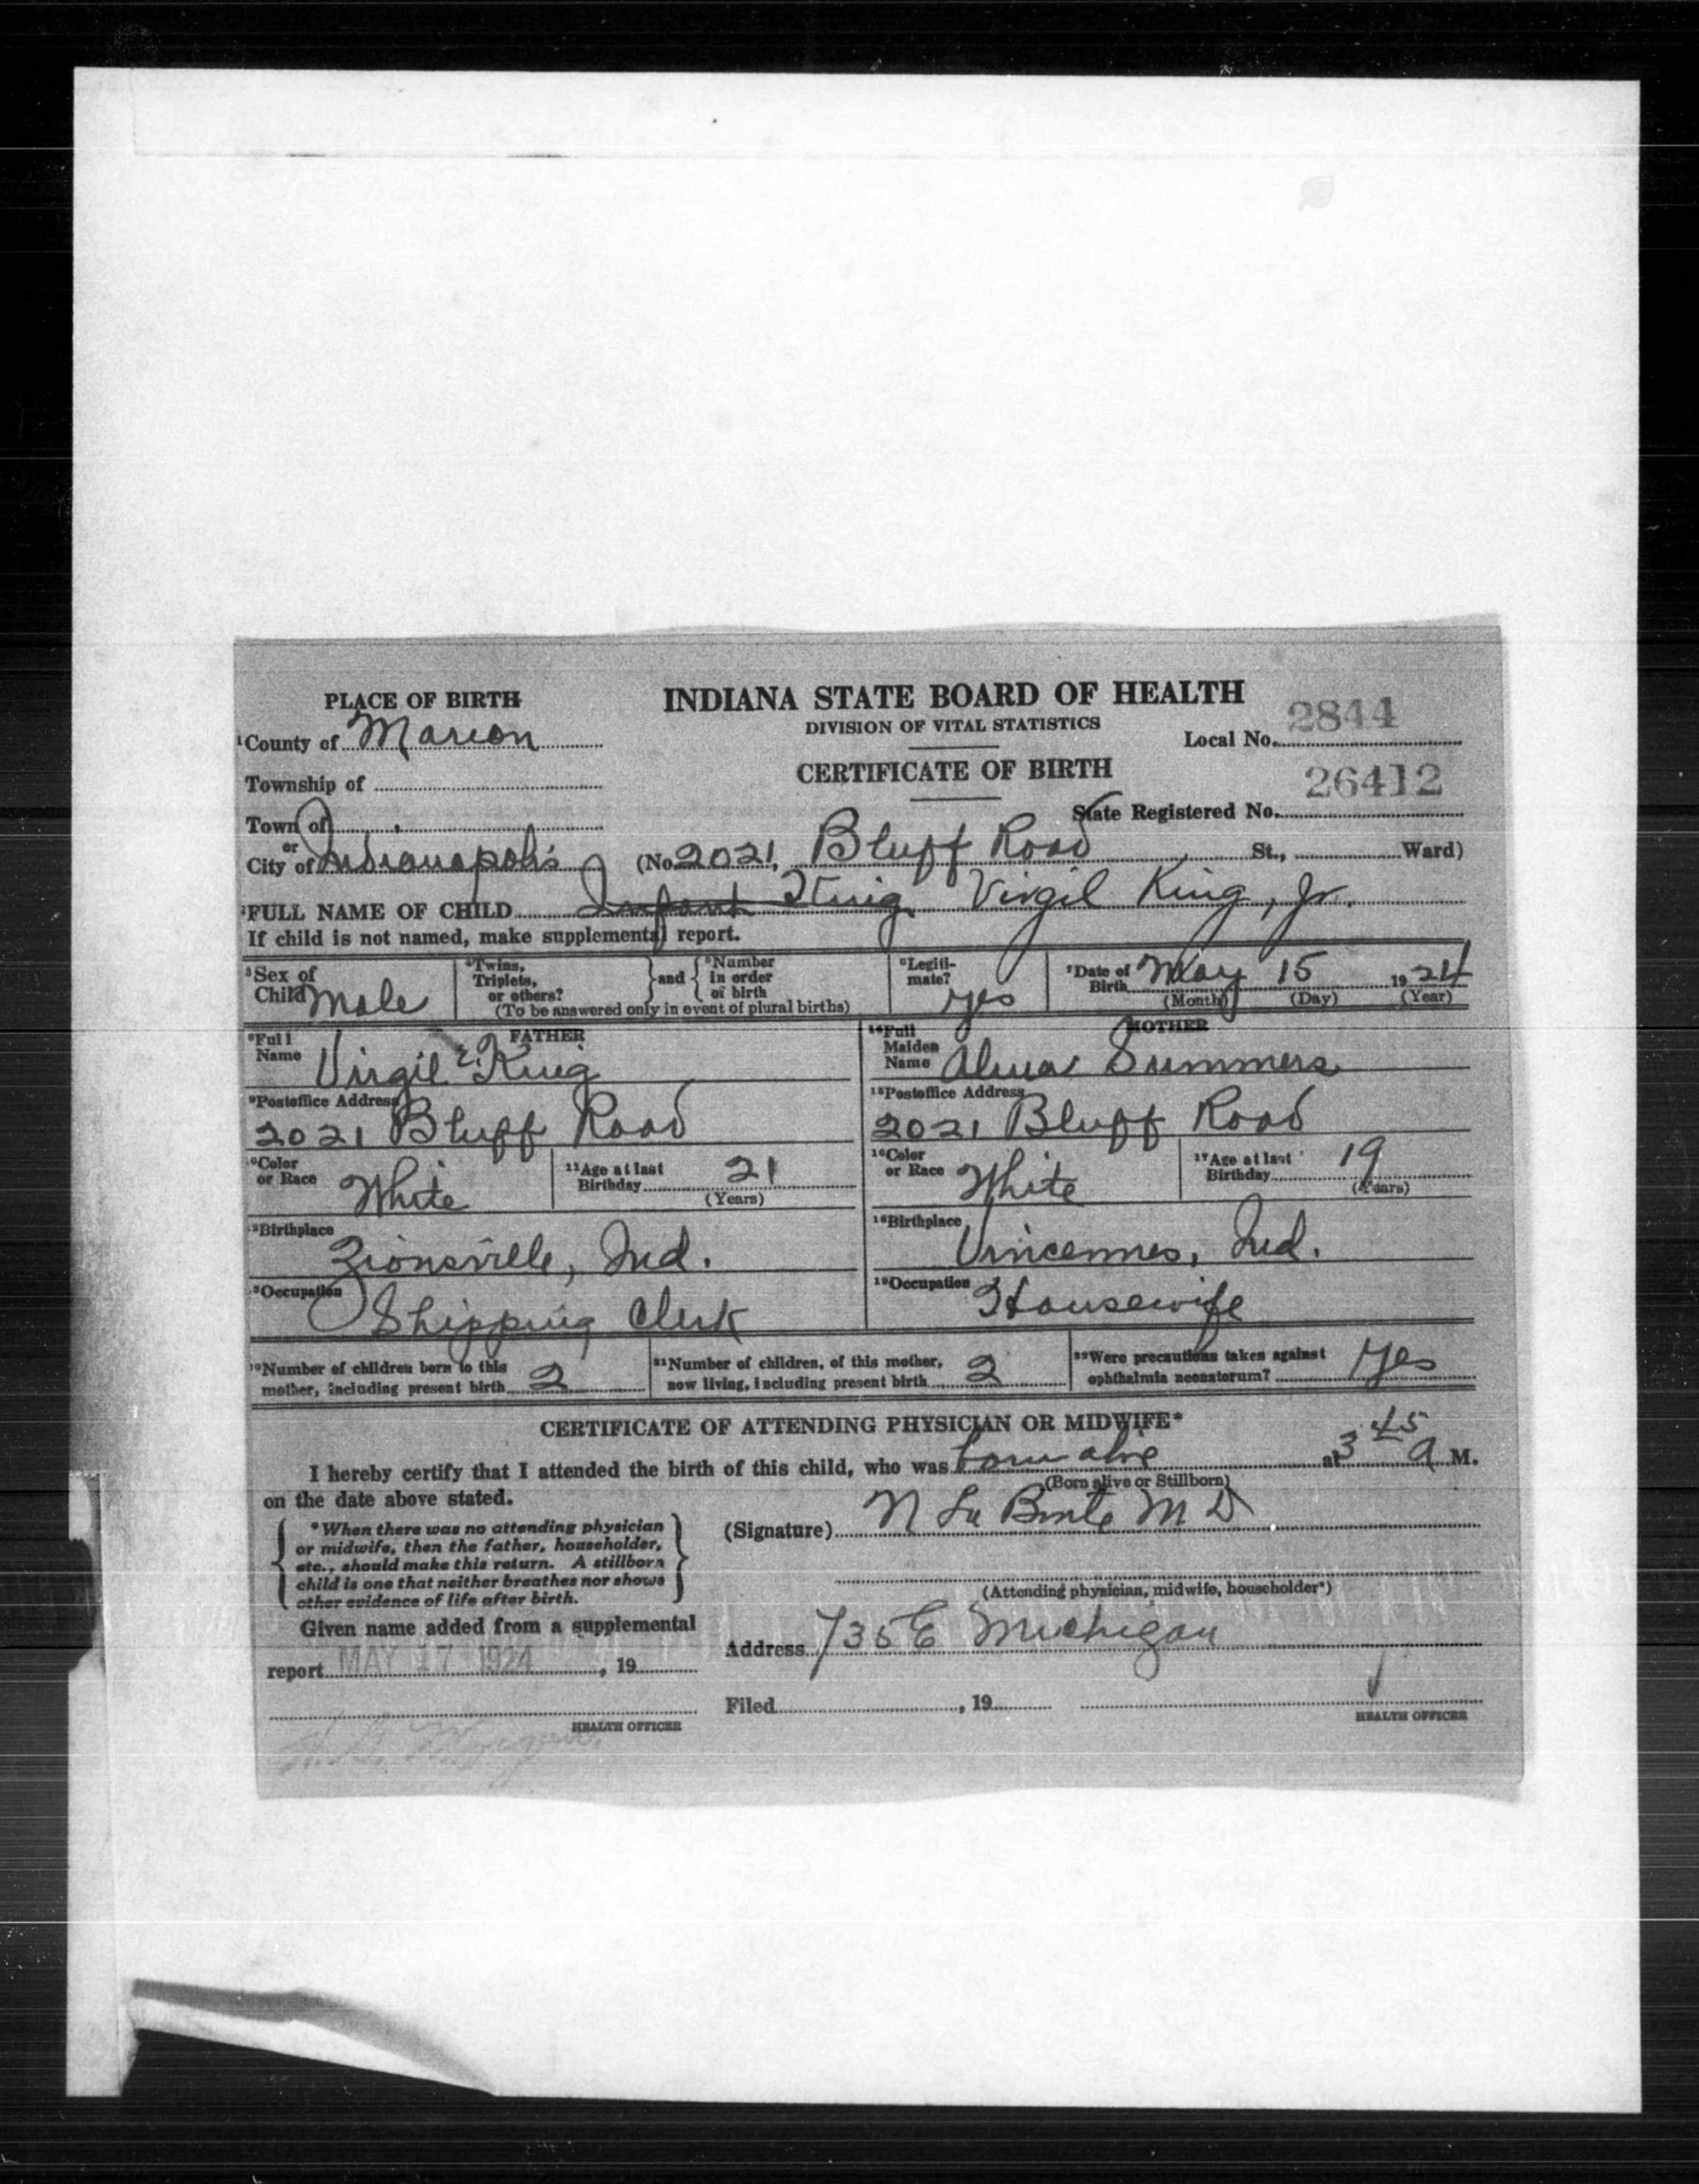 PLACE OF BIRTH
INDIANA STATE BOARD OF HEALTH
DIVISION OF VITAL STATISTICS
CERTIFICATE OF BIRTH
1County of Marion
Local No. 2844
Township of
State Registered No. 26412
Town of
or
City of Indianapolis (No 2021, Bluff Road St., Ward)
2FULL NAME OF CHILD Infant King Virgil King, Jr.
If child is not named, make supplemental report.
3Sex of Child Male
4Twins, Triplets, or others? } and { 5Number in order of birth
(To be answered only in event of plural births)
6Legitimate? yes
7Date of Birth May 15 1924
(Month) (Day) (Year)
FATHER
8Full Name Virgil E King
9Postoffice Address
2021 Bluff Road
10Color or Race White
11Age at last Birthday 21
(Years)
12Birthplace
Zionsville, Ind.
13Occupation
Shipping Clerk
MOTHER
14Full Maiden Name Alma Summers
15Postoffice Address
2021 Bluff Road
16Color or Race White
17Age at last Birthday 19
(Years)
18Birthplace
Vincennes, Ind.
19Occupation
Housewife
20Number of children born to this mother, including present birth 2
21Number of children, of this mother, now living, including present birth 2
22Were precautions taken against ophthalmia neonatorum? yes
CERTIFICATE OF ATTENDING PHYSICIAN OR MIDWIFE*
I hereby certify that I attended the birth of this child, who was born alive at 3 45 a M.
(Born alive or Stillborn)
on the date above stated.
*When there was no attending physician
or midwife, then the father, householder,
etc., should make this return. A stillborn
child is one that neither breathes nor shows
other evidence of life after birth.
(Signature) N M D
(Attending physician, midwife, householder*)
Given name added from a supplemental
report MAY 17 1924, 19
Address 735 E Michigan
Filed , 19
HEALTH OFFICER
HEALTH OFFICER
Morgan